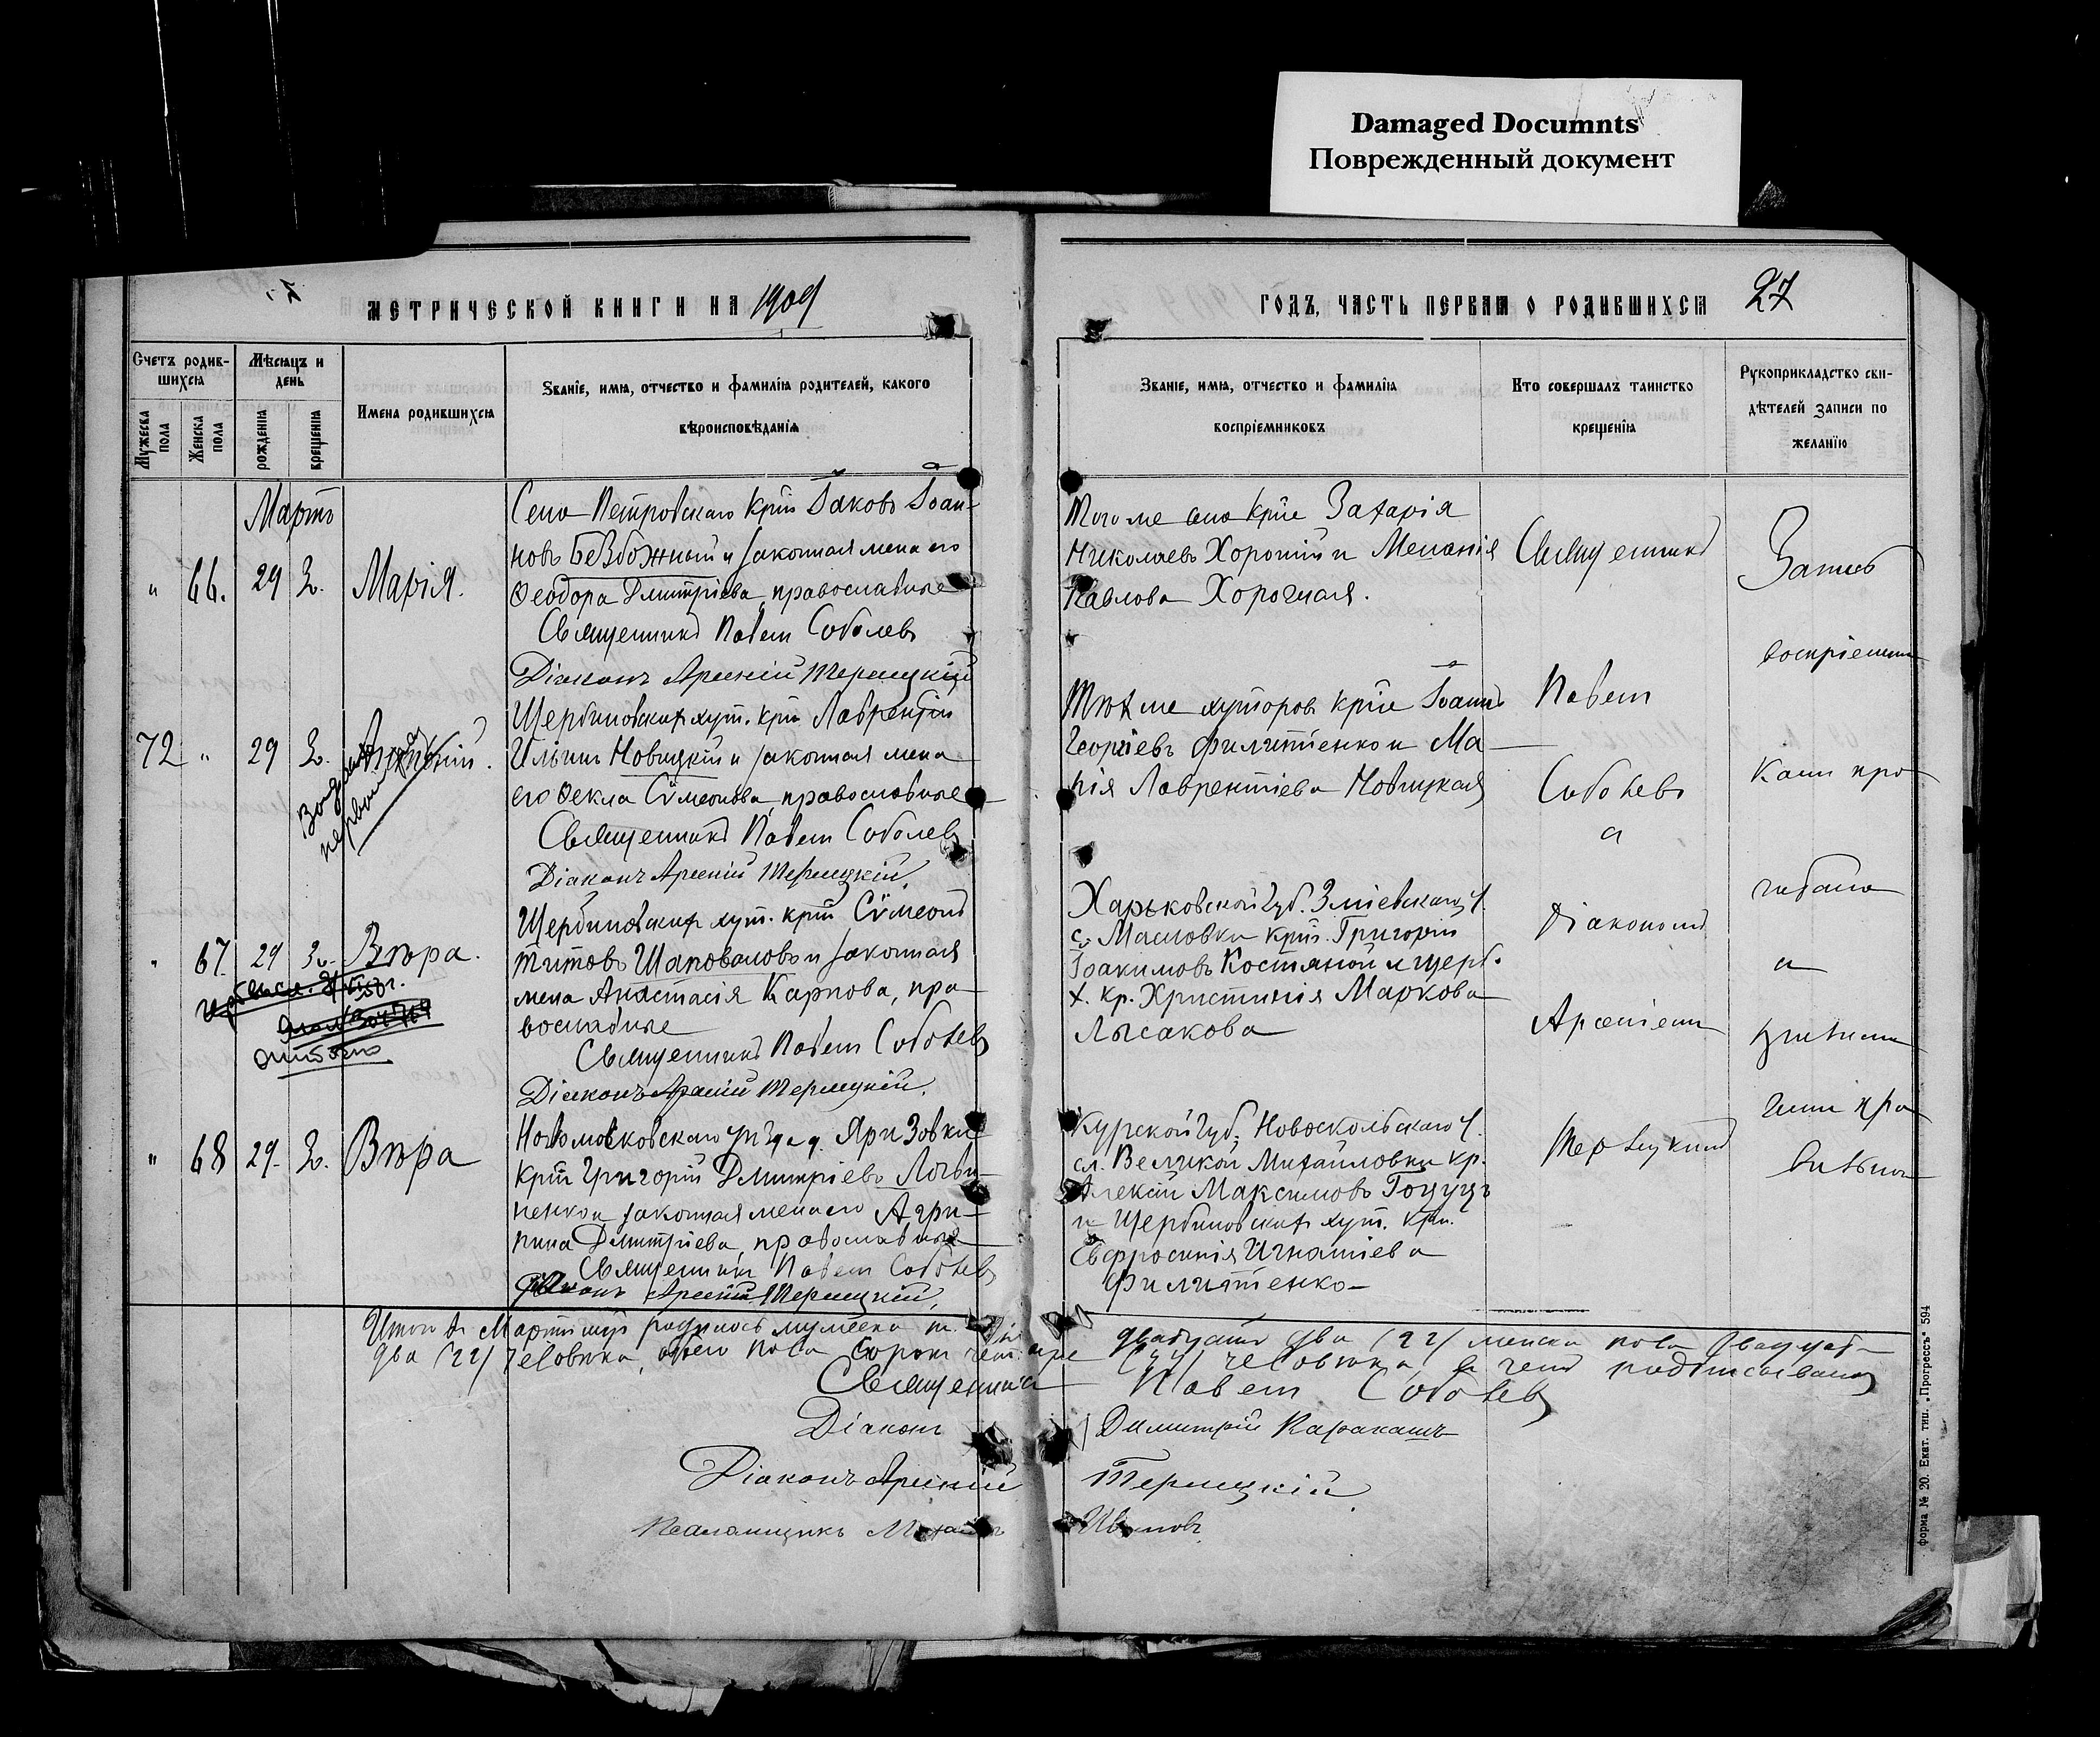 Damaged Documnts
Поврежденный документ
МЕТРИЧЕСКОЙ КНИГИ НА 1909
Счетъ родив-
шихся
Мужеска пола
Женска пола
Мѣсяцъ и
день
рожденія
крещенія
Имена родившихся
Званіе, имя, отчество и фамилія родителей, какого
вѣроисповѣданія
Мартъ
" 66. 29 30. Марія.
Села Петровскаго крⷭ҇т. Іаковъ Іоан-
новъ Безбожный и законная жена его
Ѳеодора Дмитріева, православные
Священникъ Павелъ Соболевъ
Діаконъ Арсеній Терлецкій
72 " 29 30. Антоній.
Щербиновскихъ хут. кр. Лаврентій
Ильинъ Новицкій и законная жена
его Ѳекла Сѵмеонова, православные
Священникъ Павелъ Соболевъ
Діаконъ Арсеній Терлецкій.
" 67. 29 30. Вѣра.
ошибочно
Щербиновскихъ хут. кр. Сѵмеонъ
Титовъ Шаповаловъ и законная
жена Анастасія Карпова, пра-
вославные
Священникъ Павелъ Соболевъ
Діаконъ Арсеній Терлецкій.
" 68 29. 30. Вѣра
Новомосковскаго уѣзда д.
кр. Григорій Дмитріевъ Логви-
ненко и законная жена его Агри-
пина Дмитріева, православные
Священникъ Павелъ Соболевъ
Діаконъ Арсеній Терлецкій.
ГОДЪ, ЧАСТЬ ПЕРВАЯ О РОДИВШИХСЯ 27
Званіе, имя, отчество и фамилія
воспріемниковъ
Кто совершалъ таинство
крещенія
Рукоприкладство сви-
дѣтелей записи по
желанію
Того же села кр-не Захарія
Николаевъ Хорошій и Меланія
Павлова Хорошая.
Тѣхже хуторовъ кр-не Іоаннъ
Георгіевъ Филипенко и Ма-
рія Лаврентіева Новицкая
Харьковской губ. Зміевскаго у.
с. Масловки кр. Григорій
Іоакимовъ Костяной и щерб.
х. кр. Христинія Маркова
Лысакова
Курской губ. Новоскольскаго у.
сл. Великой Михайловки кр.
Алексій Максимовъ
и Щербиновскихъ хут. кр.
Евфросинія Игнатіева
Филипенко
Священникъ
Павелъ
Соболевъ
съ
Діакономъ
Арсеніемъ
Терлецкимъ
Запись
воспріемни
ками про
читана
и
учинена
вильно
Итого въ Мартѣ м-цѣ родилось мужеска п. двадцать два (22) женска пола двадцать
два (22) человѣка, обоего пола сорокъ четыре (44) человѣка, въ чемъ подписываемся
Священникъ Павелъ Соболевъ
Діаконъ Димитрій Каракашъ
Діаконъ Арсеній Терлецкій.
Псаломщикъ Михаилъ Ивановъ.
форма № 20. Екат. тип. „Прогрессъ" 594